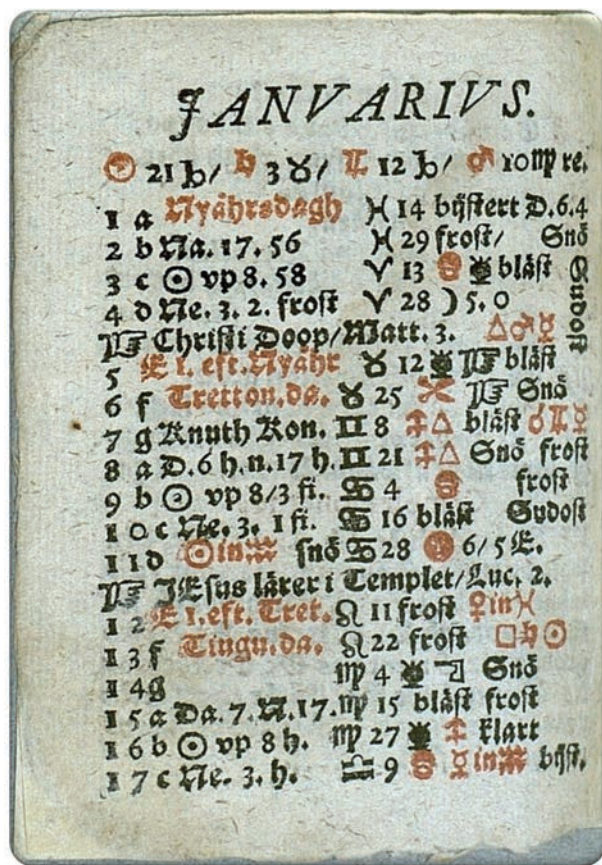 JANVARIVS.
☉ 21 ♑/ ♄ 3 ♉/ 12 ♑/ ♂ 10 ♍ re.
1 a Nyährsdagh ♓ 14 bijstert D. 6.4
2 b Na. 17. 56 ♓ 29 frost/ Snö
3 c ☉ vp 8. 58 ♈ 13 blåst
4 d Ne. 3. 2. frost ♈ 28 ☽ 5. 0 Sudost
☞ Christi Doop/Matt. 3. △ ♂ ☿
5 E 1. eft. Nyähr ♉ 12 ☞ blåst
6 f Tretton. da. ♉ 25 ☞ Snö
7 g Knuth Kon. ♊ 8 △ blåst
8 a D. 6 h. n. 17 h. ♊ 21 △ Snö frost
9 b ☉ vp 8/3 fi. ♋ 4 frost
10 c Ne. 3. 1 fi. ♋ 16 blåst Sudost
11 d ☉ in ♒ snö ♋ 28 6/ 5 E.
☞ JEsus lärer i Templet/Luc. 2.
12 E 1. eft. Tret. ♌ 11 frost ♀ in ♓
13 f Tingu. da. ♌ 22 frost □ ♄ ☉
14 g ♍ 4 Snö
15 a Da. 7. N. 17. ♍ 15 blåst frost
16 b ☉ vp 8 h. ♍ 27 klart
17 c Ne. 3. h. ♎ 9 ☿ in ♒ bijst.